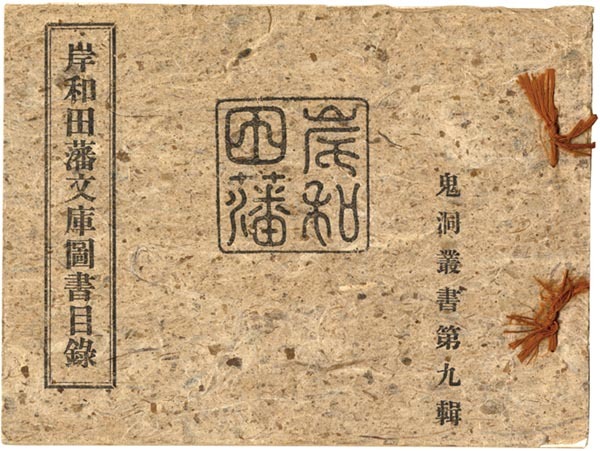 鬼洞叢書第九輯
岸和
田藩
岸和田藩文庫圖書目錄